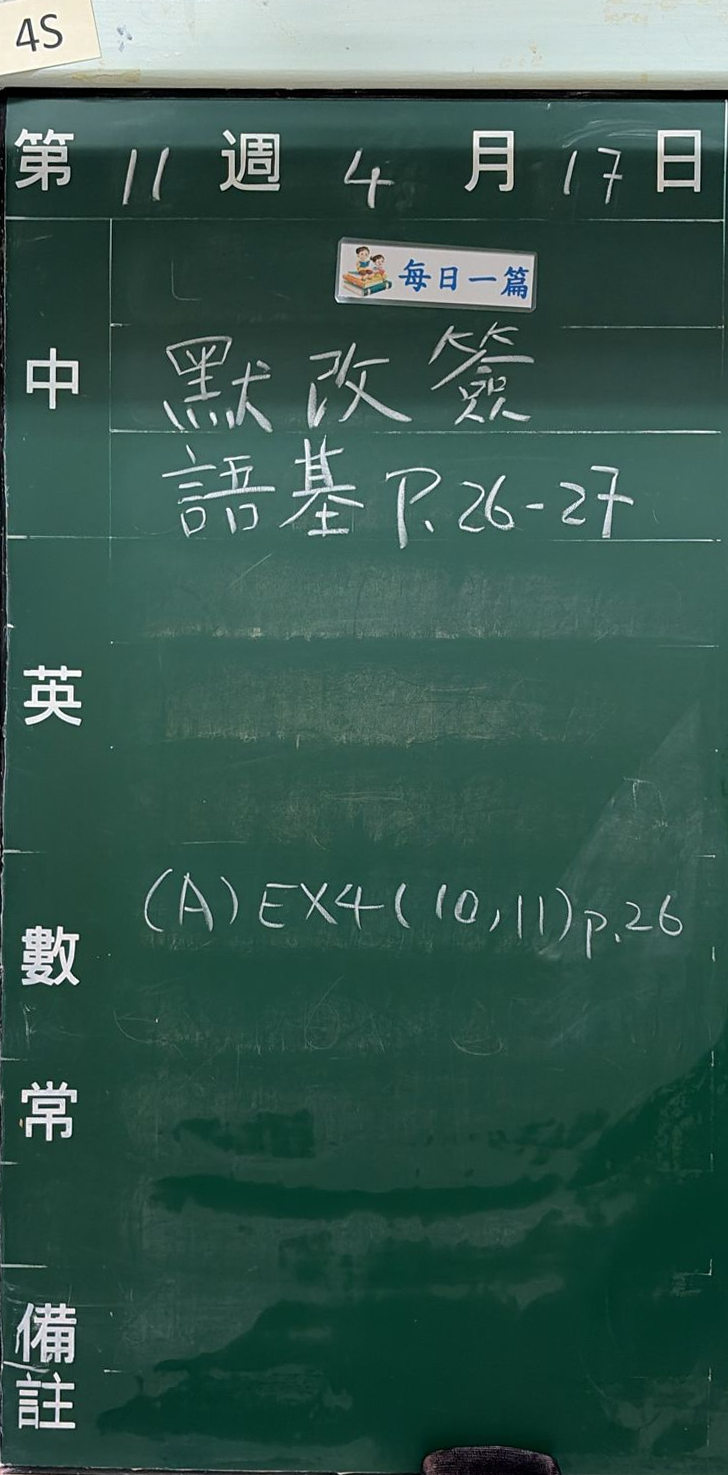 4S
第 11 週 4 月 17 日
每日一篇
中
默改簽
語基 P.26-27
英
數
(A) EX4(10,11)p.26
常
備註